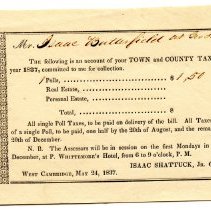 Mr. Isaac Butterfield
The following is an account of your TOWN and COUNTY TAX
year 1837, committed to me for collection.
1 Polls, $1,50
Real Estate,
Personal Estate,
Total, $
All single Poll Taxes, to be paid on delivery of the bill. All Taxes
of a single Poll, to be paid, one half by the 20th of August, and the remain
20th of December.
N. B. The Assessors will be in session on the first Mondays in
December, at P. Whittemore's Hotel, from 6 to 9 o'clock, P. M.
ISAAC SHATTUCK, JR.
West Cambridge, May 24, 1837.